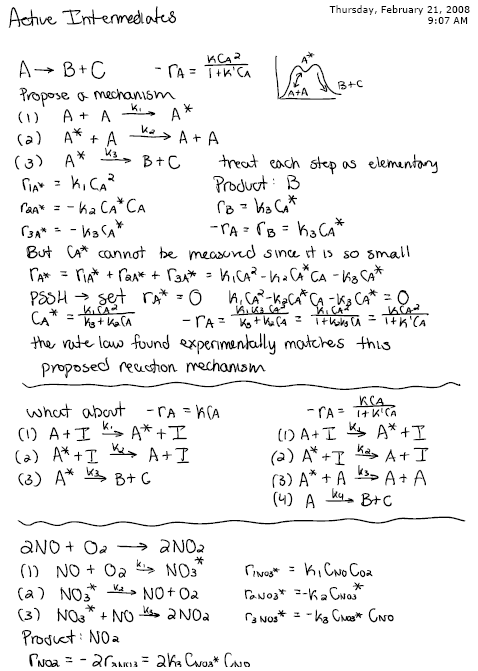 Active Intermediates
Thursday, February 21, 2008
9:07 AM
A → B + C   -rA = KCA²/(1+K'CA)
A*
A+A
B+C
Propose a mechanism
(1) A + A –k1→ A*
(2) A* + A –k2→ A + A
(3) A* –k3→ B + C   treat each step as elementary
r1A* = k1CA²   Product: B
r2A* = -k2CA*CA   rB = k3CA*
r3A* = -k3CA*   -rA = rB = k3CA*
But CA* cannot be measured since it is so small
rA* = r1A* + r2A* + r3A* = k1CA² - k2CA*CA - k3CA*
PSSH → set rA* = 0   k1CA² - k2CA*CA - k3CA* = 0
CA* = k1CA²/(k3+k2CA)   -rA = k1k3CA²/(k3+k2CA) = k1CA²/(1+k2/k3CA) = KCA²/(1+K'CA)
the rate law found experimentally matches this
proposed reaction mechanism
what about -rA = KCA   -rA = KCA/(1+K'CA)
(1) A + I –k1→ A* + I   (1) A + I –k1→ A* + I
(2) A* + I –k2→ A + I   (2) A* + I –k2→ A + I
(3) A* –k3→ B + C   (3) A* + A –k3→ A + A
(4) A –k4→ B + C
2NO + O2 → 2NO2
(1) NO + O2 –k1→ NO3*   r1NO3* = k1CNOCO2
(2) NO3* –k2→ NO + O2   r2NO3* = -k2CNO3*
(3) NO3* + NO –k3→ 2NO2   r3NO3* = -k3CNO3* CNO
Product: NO2
rNO2 = -2r3NO3 = 2k3CNO3* CNO